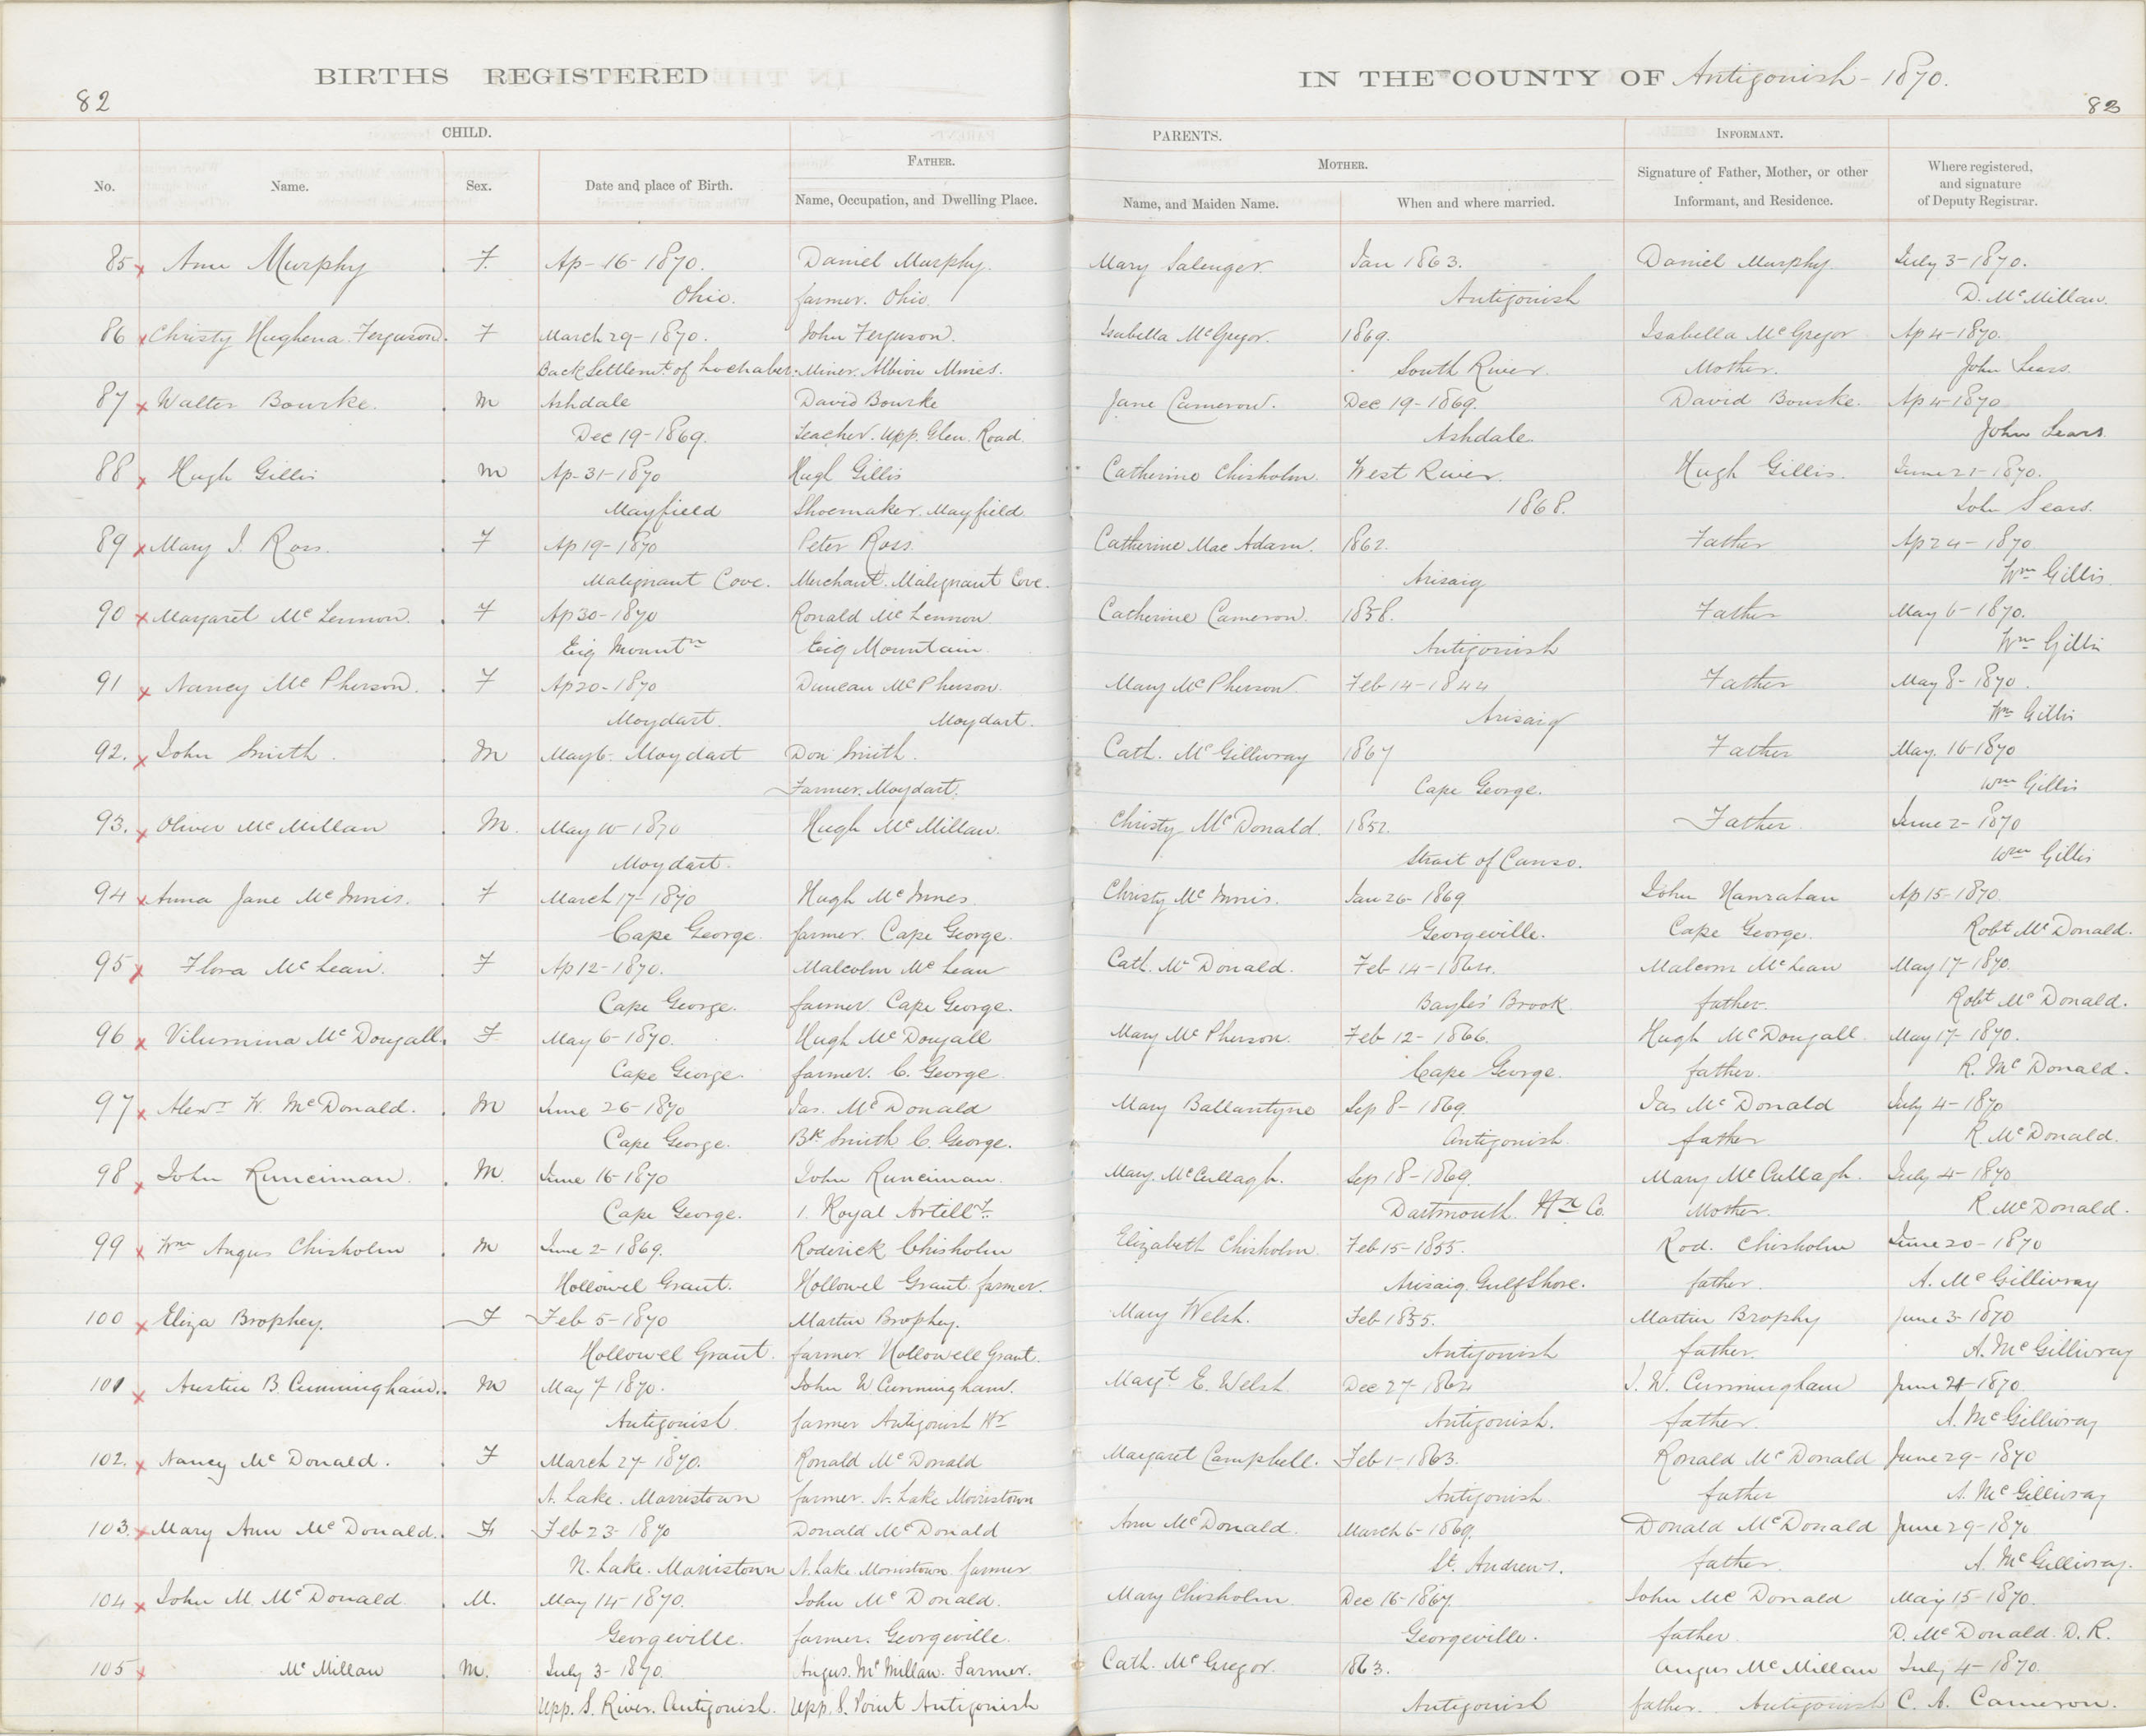 BIRTHS REGISTERED
IN THE COUNTY OF Antigonish - 1870.
82
83
CHILD.
PARENTS.
INFORMANT.
FATHER.
MOTHER.
No.
Name.
Sex.
Date and place of Birth.
Name, Occupation, and Dwelling Place.
Name, and Maiden Name.
When and where married.
Signature of Father, Mother, or other
Informant, and Residence.
Where registered,
and signature
of Deputy Registrar.
85 x Ann Murphy F. Ap-16-1870. Daniel Murphy. Mary Salenger. Jan 1863. Daniel Murphy July 3-1870.
Ohio. farmer. Ohio. Antigonish D. McMillan.
86 x Christy Hughena Ferguson. F March 29-1870. John Ferguson. Isabella McGregor. 1869. Isabella McGregor Ap 4-1870.
Back Settlemt. of Lochaber. Miner. Albion Mines. South River. Mother. John Sears.
87 x Walter Bourke. M Ashdale David Bourke Jane Cameron. Dec 19-1869. David Bourke. Ap 4-1870
Dec 19-1869. Teacher. Upp. Glen. Road. Ashdale. John Sears.
88 x Hugh Gillis M Ap-31-1870 Hugh Gillis Catherine Chisholm. West River. Hugh Gillis. June 21-1870.
Mayfield Shoemaker. Mayfield 1868. John Sears.
89 x Mary J. Ross. F Ap 19-1870 Peter Ross. Catherine Mac Adam. 1862. Father Ap 24-1870.
Malignant Cove. Merchant. Malignant Cove. Arisaig Wm Gillis.
90 x Margaret McLennon. F Ap 30-1870 Ronald McLennon Catherine Cameron. 1858. Father May 6-1870.
Eig Mountn Eig Mountain. Antigonish Wm Gillis
91 x Nancy McPherson. F Ap 20-1870 Duncan McPherson. Mary McPherson. Feb 14-1844 Father May 8-1870.
Moydart. Moydart. Arisaig Wm Gillis
92. x John Smith. M May 6. Moydart Don Smith. Cath. McGillivray 1867 Father May. 16-1870
Farmer. Moydart. Cape George. Wm Gillis
93. x Oliver McMillan M. May 10-1870 Hugh McMillan. Christy McDonald. 1852. Father. June 2-1870
Moydart. Strait of Canso. Wm Gillis
94 x Anna Jane McInnis. F March 17-1870 Hugh McInnes Christy McInnis. Jan 26-1869 John Hanrahan Ap 15-1870.
Cape George. farmer. Cape George. Georgeville. Cape George. Robt McDonald.
95 x Flora McLean. F Ap 12-1870. Malcolm McLean Cath. McDonald. Feb 14-1864. Malcom McLean May 17-1870.
Cape George. farmer. Cape George. Bayles' Brook. father. Robt McDonald.
96 x Vilumina McDougall. F May 6-1870. Hugh McDougall Mary McPherson. Feb 12-1866. Hugh McDougall May 17-1870.
Cape George. farmer. C. George. Cape George. father. R. McDonald.
97 x Alexr W. McDonald. M June 26-1870 Jas. McDonald Mary Ballantyne Sep 8-1869. Jas McDonald July 4-1870
Cape George. Bk Smith C. George. Antigonish. father R. McDonald.
98 x John Runciman. M. June 16-1870 John Runciman. Mary. McCullagh. Sep 18-1869. Mary McCullagh. July 4-1870
Cape George. 1. Royal Artilly. Dartmouth. Hx Co. Mother. R McDonald.
99 x Wm Angus Chisholm M June 2-1869. Roderick Chisholm Elizabeth Chisholm. Feb 15-1855. Rod. Chisholm June 20-1870
Hollowel Grant. Hollowel Grant. farmer. Arisaig Gulf Shore. father. A. McGillivray
100 x Eliza Brophey. F Feb 5-1870 Martin Brophey. Mary Welsh. Feb 1855. Martin Brophy June 3-1870
Hollowel Grant. farmer Hollowell Grant. Antigonish father. A. McGillivray
101 x Austin B. Cunningham. M May 7 1870. John W Cunningham. Margt. E. Welsh. Dec 27-1864 J. W. Cunningham June 21-1870
Antigonish. farmer Antigonish Hr Antigonish. father. A. McGillivray
102. x Nancy McDonald. F March 27-1870. Ronald McDonald Margaret Campbell. Feb 1-1863. Ronald McDonald June 29-1870
N. Lake. Morristown farmer. N. Lake Morristown Antigonish. father A. McGillivray
103. x Mary Ann McDonald. F Feb 23-1870 Donald McDonald Ann McDonald. March 6-1869. Donald McDonald June 29-1870
N. Lake. Morristown N. Lake. Morristown. farmer St. Andrews. father. A. McGillivray.
104 x John M. McDonald. M. May 14-1870. John McDonald. Mary Chisholm Dec 16-1867. John McDonald May 15-1870.
Georgeville. farmer. Georgeville. Georgeville. father. D. McDonald. D.R.
105 x McMillan M. July 3-1870. Angus. McMillan. Farmer. Cath. McGregor. 1863. Angus McMillan July 4-1870.
Upp. S. River. Antigonish. Upp. S. Point Antigonish Antigonish father. Antigonish C. A. Cameron.